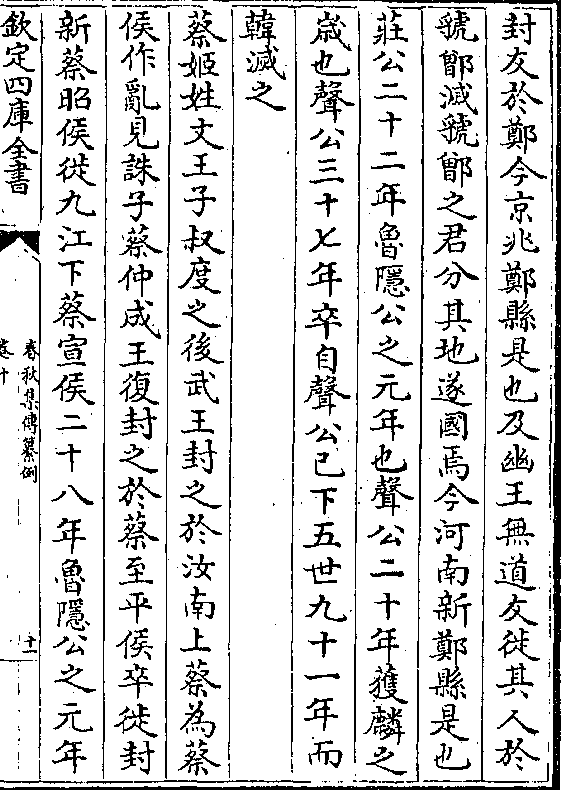 封友於鄭今京兆鄭縣是也及幽王無道友徙其人於
虢鄶滅虢鄶之君分其地遂國焉今河南新鄭縣是也
莊公二十二年魯隱公之元年也聲公二十年獲麟之
嵗也聲公三十七年卒自聲公已下五世九十一年而
韓滅之
蔡姬姓文王子叔度之後武王封之於汝南上蔡為蔡
侯作亂見誅子蔡仲成王復封之於蔡至平侯卒徙封
新蔡昭侯徙九江下蔡宣侯二十八年魯隱公之元年
欽定四庫全書
春秋集傳纂例
卷十
十一